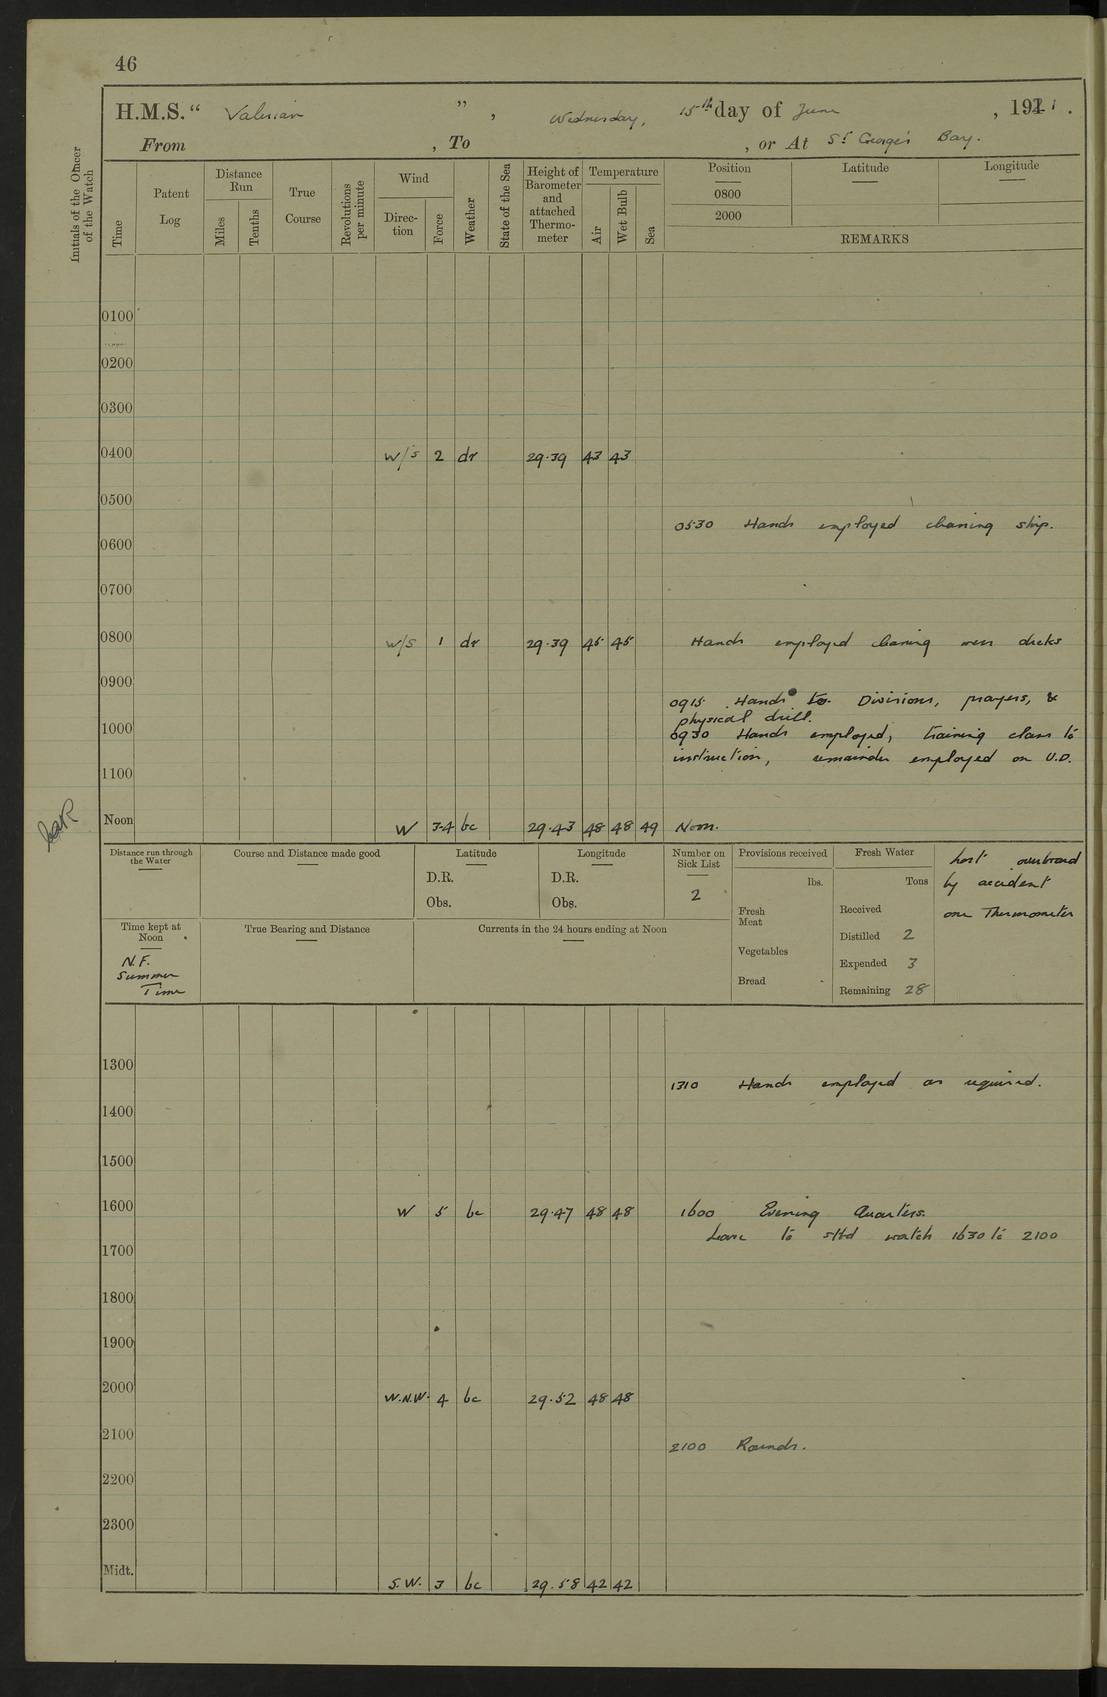 46
H.M.S. “ Valerian ” , Wednesday, 15th day of June , 1921 .
From , To , or At St George's Bay.
Initials of the Officer of the Watch
Time
Patent Log
Distance Run
Miles
Tenths
True Course
Revolutions per minute
Wind
Direc-tion
Force
Weather
State of the Sea
Height of Barometer and attached Thermo-meter
Temperature
Air
Wet Bulb
Sea
Position
Latitude
Longitude
0800
2000
REMARKS
0100
0200
0300
0400 W/S 2 dr 29.39 43 43
0500
0530 Hands employed cleaning ship.
0600
0700
0800 W/S 1 dr 29.39 45 45 Hands employed cleaning mess decks
0900
0915 Hands to Divisions, prayers, &
physical drill.
1000
0930 Hands employed, training class to
instruction, remainder employed on U.D.
1100
Noon W 3-4 bc 29.43 48 48 49 Noon.
Distance run through the Water
Course and Distance made good
Latitude
D.R.
Obs.
Longitude
D.R.
Obs.
Number on Sick List
2
Provisions received
lbs.
Fresh Meat
Vegetables
Bread
Fresh Water
Tons
Received
Distilled 2
Expended 3
Remaining 28
Lost overboard
by accident
one Thermometer
Time kept at Noon
N.F.
Summer
Time
True Bearing and Distance
Currents in the 24 hours ending at Noon
1300
1310 Hands employed as required.
1400
1500
1600 W 5 bc 29.47 48 48 1600 Evening Quarters.
Leave to stbd watch 1630 to 2100
1700
1800
1900
2000 W.N.W. 4 bc 29.52 48 48
2100
2100 Rounds.
2200
2300
Midt. S.W. 3 bc 29.58 42 42